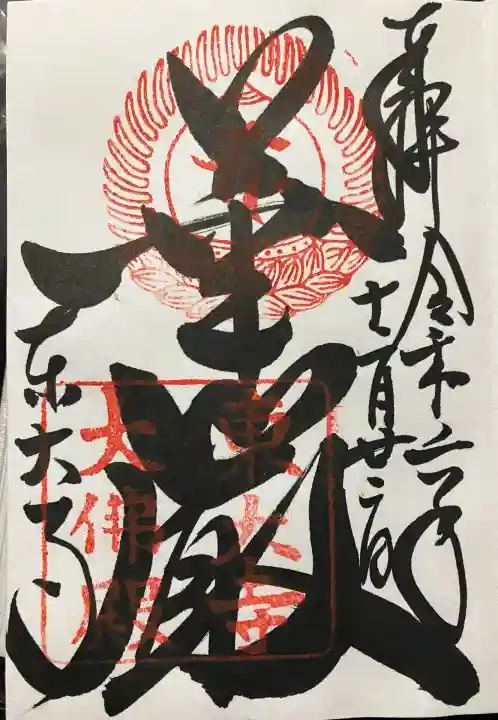 奉拝
令和六年
十一月廿二日
華厳
東大寺
東大寺
大佛殿